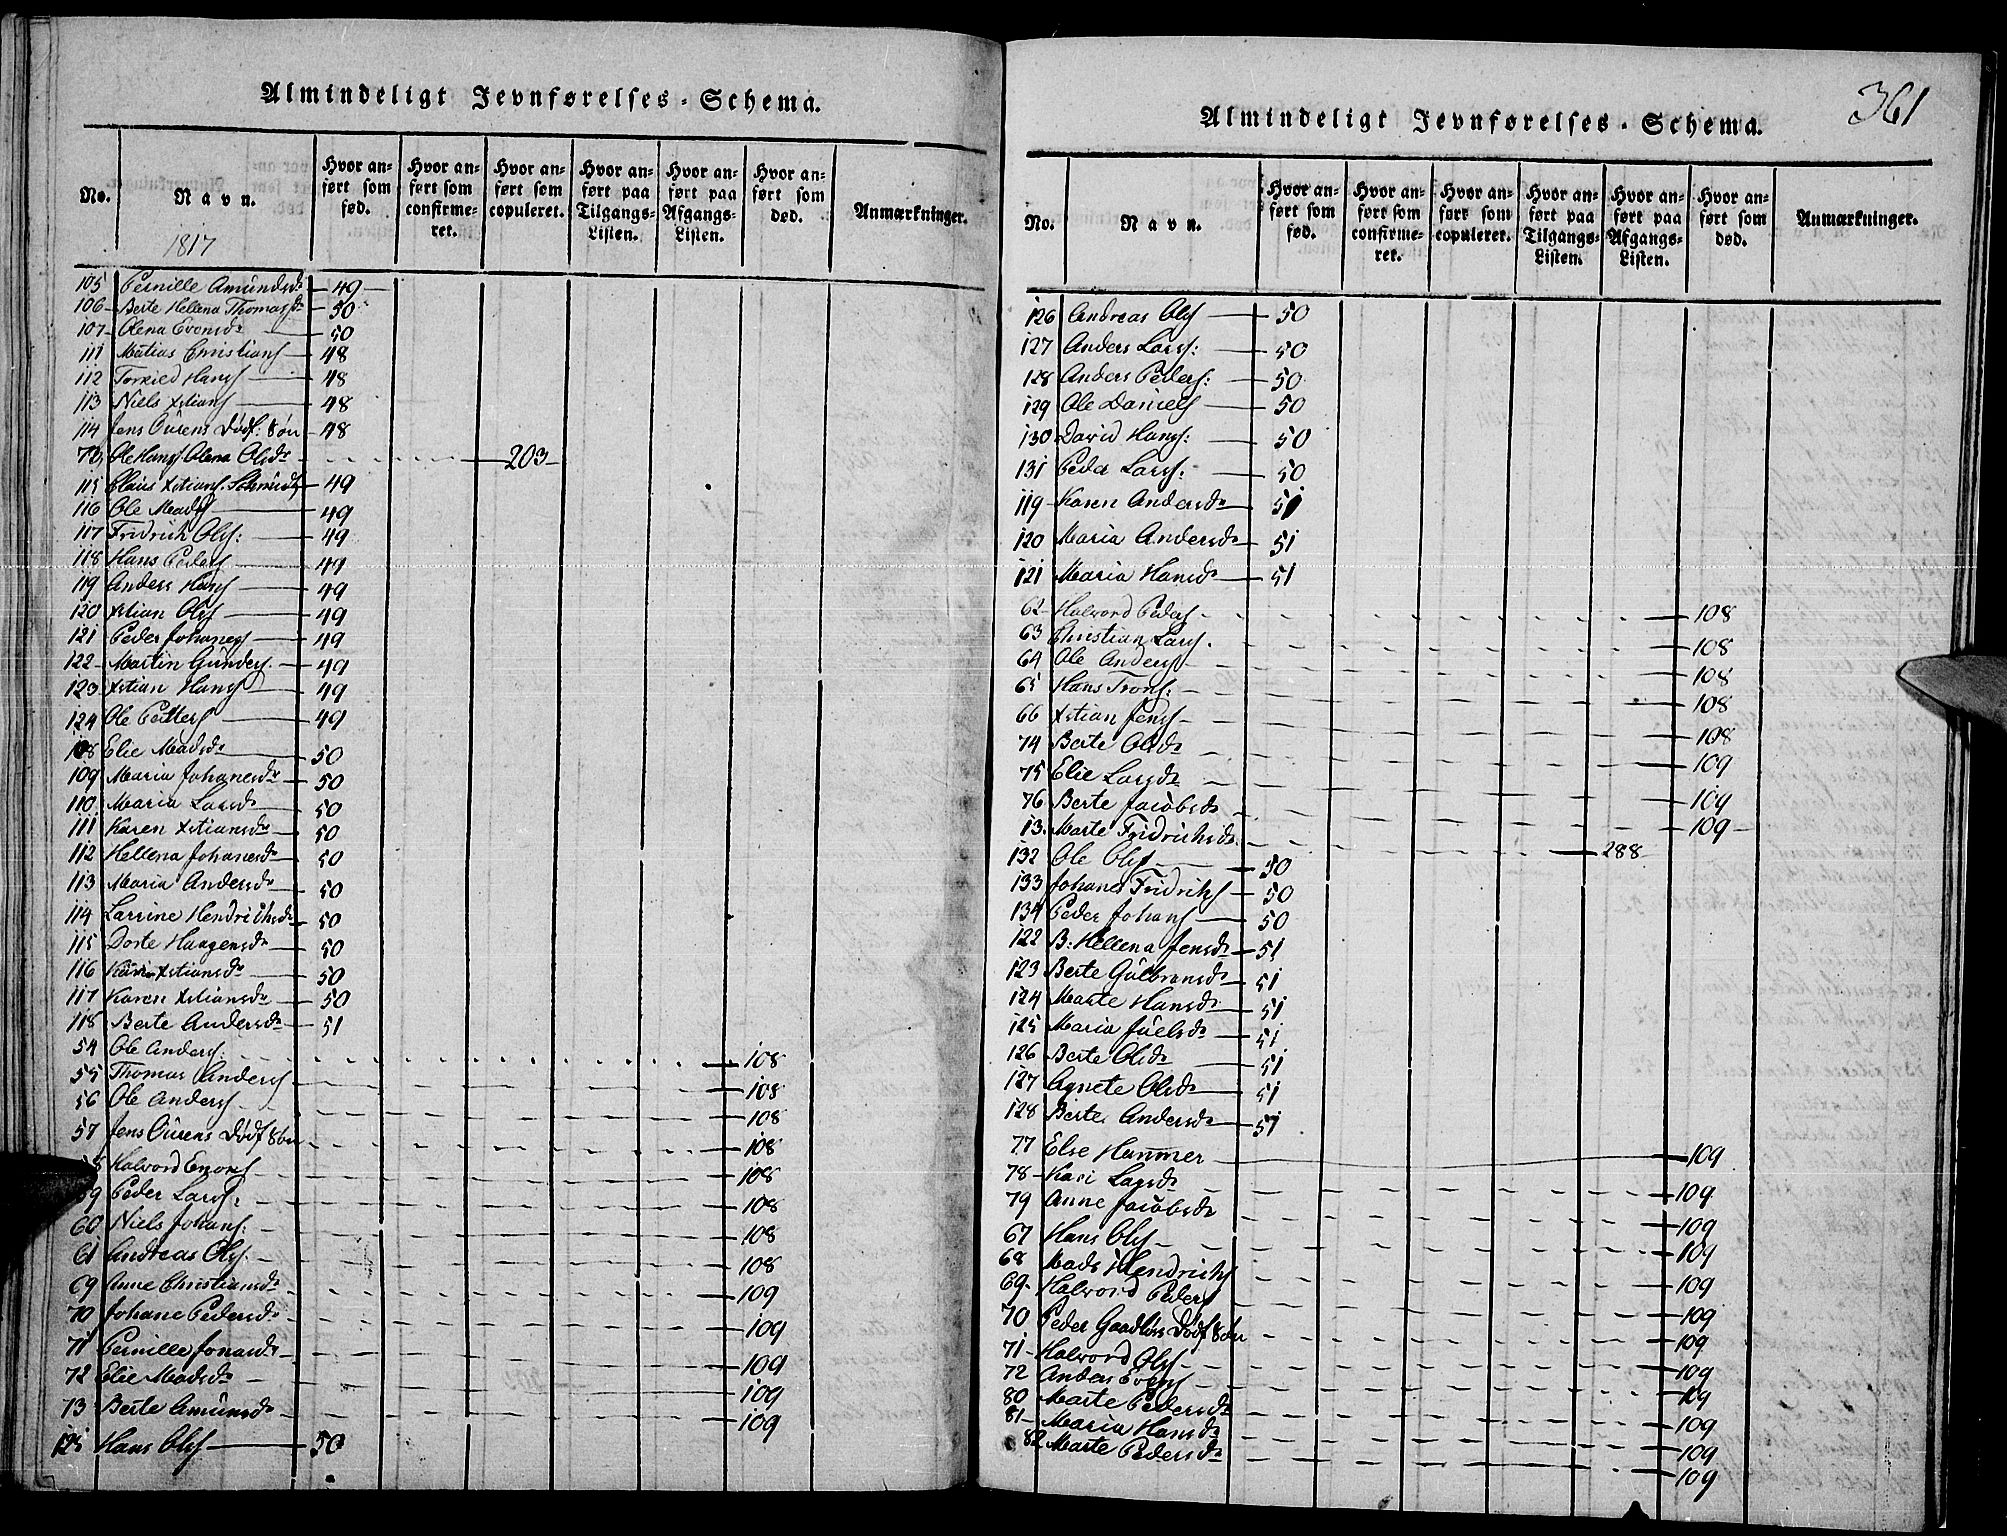 Almindeligt Jevnførelses-Schema.
No. Navn. Hvor anført som fød. Hvor anført som confirmeret. Hvor anført som copuleret. Hvor anført paa Tilgangs-Listen. Hvor anført paa Afgangs-Listen. Hvor anført som død. Anmærkninger.
1817
105 Pernille Amundsdr 49
106 Berte Hellena Thomasdr 50
107 Olena Evensdr 50
111 Matias Christians 48
112 Torkied Hans 48
113 Niels Xstians 48
114 Jens Ourens Dødf: Søn 48
Ole Hans Olena Olsdr 203
115 Claus Xstians. Schmidt 49
116 Ole Mads 49
117 Fridrich Ols: 49
118 Hans Peders 49
119 Anders Hans 49
120 Xstian Ols 49
121 Peder Johanes 49
122 Martin Gunders. 49
123 Xstian Hans 49
124 Ole Petters 49
108 Elie Madsdr 50
109 Maria Johanesdr 50
110 Maria Larsdr 50
111 Karen Xstiansdr 50
112 Hellena Johanesdr 50
113 Maria Andersdr 50
114 Larrine Hendrichsdr 50
115 Dorte Haagensdr 50
116 Kari Xstiansdr 50
117 Karen Xstiansdr 50
118 Berte Andersdr 51
54 Ole Anders: 108
55 Thomas Anders 108
56 Ole Anders 108
57 Jens Ourens Dødf Søn 108
Halvord Evens 108
59 Peder Lars: 108
60 Niels Johans: 108
61 Andreas Ols: 108
69 Anne Christiansdr 109
70 Johane Pedersdr 109
71 Pernille Jonasdr 109
72 Elie Madsdr 109
73 Berte Amunsdr 109
125 Hans Ols 50
361
Almindeligt Jevnførelses-Schema.
No. Navn. Hvor anført som fød. Hvor anført som confirmeret. Hvor anført som copuleret. Hvor anført paa Tilgangs-Listen. Hvor anført paa Afgangs-Listen. Hvor anført som død. Anmærkninger.
126 Andreas Ols 50
127 Anders Lars: 50
128 Anders Peders: 50
129 Ole Daniels 50
130 David Hans: 50
131 Peder Lars: 50
119 Karen Andersdr 51
120 Maria Andersdr 51
121 Maria Hansdr 51
62 Halvord Peders 108
63 Christian Lars. 108
64 Ole Anders 108
65 Hans Trons: 108
66 Xstian Jens 108
74 Berte Olsdr 109
75 Elie Larsdr 109
76 Berte Jacobsdr 109
13. Marte Fridrichsdr. 288
132 Ole Ols 50
133 Johanes Fridrichs 50
134 Peder Johans 50
122 B: Hellena Jensdr 51
123 Berte Gulbransdr 51
124 Marte Hansdr 51
125 Maria Juelsdr 51
126 Berte Olsdr 51
127 Agnete Olsdr 51
128 Berte Andersdr 51
77 Else Hammer 109
78 Kari Larsdr 109
79 Anne Jacobsdr 109
67 Hans Ols 109
68 Mads Hendrichs 109
69 Halvord Peders 109
70 Peder Gaadløs Dødf Søn 109
71 Halvord Ols 109
72 Anders Evens 109
80 Marte Pedersdr 109
81 Maria Hansdr 109
82 Marte Pedersdr 109